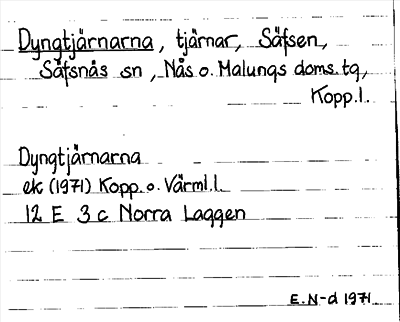 Dyngtjärnarna, tjärnar, Säfsen,
Säfsnäs sn, Nås o. Malungs doms. tg,
Kopp. l.
Dyngtjärnarna
ek (1971) Kopp. o. Värml. l.
12 E 3 c Norra Laggen
E. N-d 1971